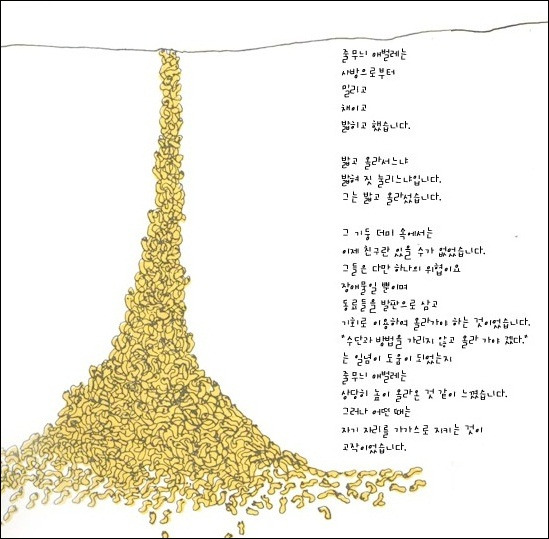 줄무늬 애벌레는
사방으로부터
밀리고
채이고
밟히고 했습니다.
밟고 올라서느냐
밟혀 짓 눌리느냐입니다.
그는 밟고 올라섰습니다.
그 기둥 더미 속에서는
이제 친구란 있을 수가 없었습니다.
그들은 다만 하나의 위협이요
장애물일 뿐이며
동료들을 발판으로 삼고
기회로 이용하여 올라가야 하는 것이었습니다.
"수단과 방법을 가리지 않고 올라 가야 겠다."
는 일념이 도움이 되었는지
줄무늬 애벌레는
상당히 높이 올라온 것 같이 느꼈습니다.
그러나 어떤 때는
자기 자리를 가까스로 지키는 것이
고작이었습니다.